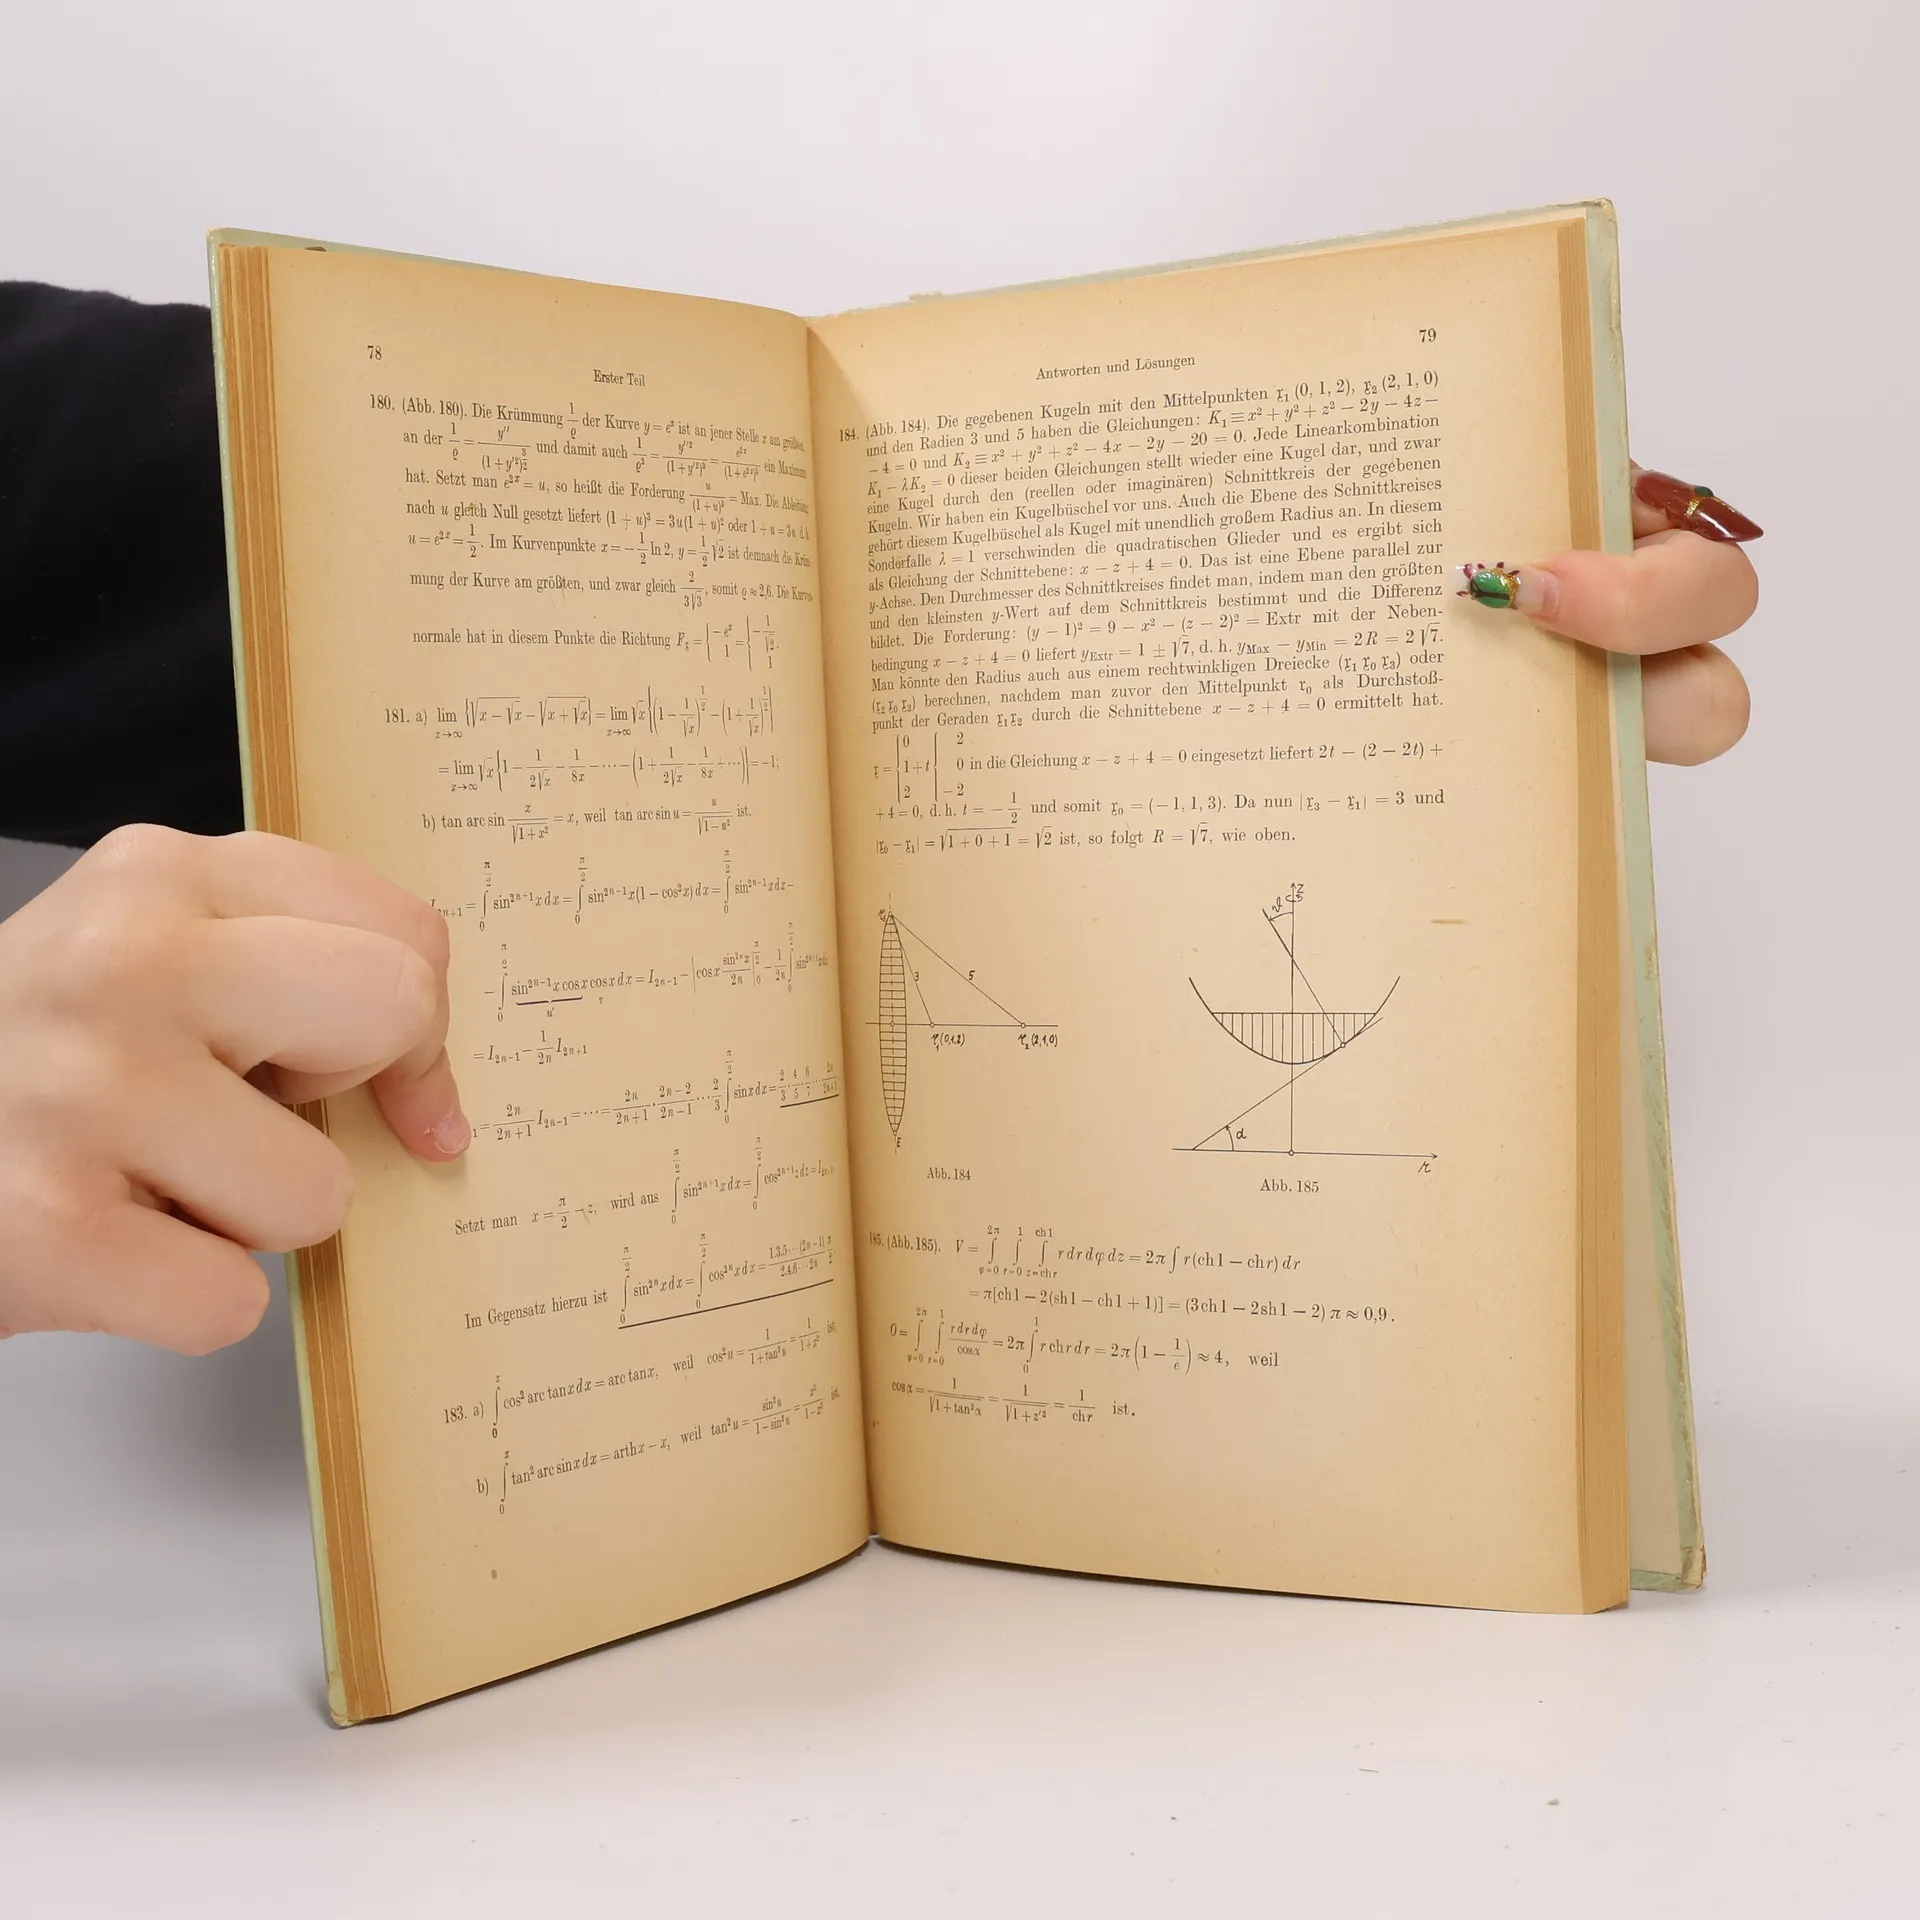 78
Erster Teil
180. (Abb. 180). Die Krümmung 1/ϱ der Kurve y = eˣ ist an jener Stelle x am größten
an der 1/ϱ = y″/(1 + y′²)^(3/2) und damit auch 1/ϱ² = y″²/(1 + y′²)³ = e²ˣ/(1 + e²ˣ)³ ein Maximum
hat. Setzt man e²ˣ = u, so heißt die Forderung u/(1 + u)³ = Max. Die Ableitung
nach u gleich Null gesetzt liefert (1 + u)³ = 3u(1 + u)² oder 1 + u = 3u, d. h.
u = e²ˣ = 1/2. Im Kurvenpunkte x = − 1/2 ln 2, y = 1/2 √2 ist demnach die Krüm-
mung der Kurve am größten, und zwar gleich 2/(3√3), somit ϱ ≈ 2,6. Die Kurven-
normale hat in diesem Punkte die Richtung F𝔵 = { −eˣ, 1 = { −1/√2, 1.
181. a) lim x→∞ {√(x − √x) − √(x + √x)} = lim x→∞ √x {(1 − 1/√x)^(1/2) − (1 + 1/√x)^(1/2)}
= lim x→∞ √x {1 − 1/(2√x) − 1/(8x) − ··· − (1 + 1/(2√x) − 1/(8x) + ···)} = −1;
b) tan arc sin x/√(1 + x²) = x, weil tan arc sin u = u/√(1 − u²) ist.
I₂ₙ₊₁ = ∫₀^(π/2) sin²ⁿ⁺¹ x dx = ∫₀^(π/2) sin²ⁿ⁻¹ x (1 − cos² x) dx = ∫₀^(π/2) sin²ⁿ⁻¹ x dx −
− ∫₀^(π/2) sin²ⁿ⁻¹ x cos x cos x dx = I₂ₙ₋₁ − |cos x sin²ⁿ x/2n|₀^(π/2) − 1/2n ∫₀^(π/2) sin²ⁿ⁺¹ x dx
u′ v
= I₂ₙ₋₁ − 1/2n I₂ₙ₊₁
₁ = 2n/(2n + 1) I₂ₙ₋₁ = ··· = 2n/(2n + 1) · (2n − 2)/(2n − 1) ··· 2/3 ∫₀^(π/2) sin x dx = 2/3 · 4/5 · 6/7 ··· 2n/(2n + 1)
Setzt man x = π/2 − z, wird aus ∫₀^(π/2) sin²ⁿ⁺¹ x dx = ∫₀^(π/2) cos²ⁿ⁺¹ z dz = I₂ₙ₊₁
Im Gegensatz hierzu ist ∫₀^(π/2) sin²ⁿ x dx = ∫₀^(π/2) cos²ⁿ x dx = 1.3.5···(2n−1)/2.4.6···2n π/2
183. a) ∫₀ˣ cos² arc tan x dx = arc tan x, weil cos² u = 1/(1 + tan² u) = 1/(1 + x²) ist.
b) ∫₀ˣ tan² arc sin x dx = arth x − x, weil tan² u = sin² u/(1 − sin² u) = x²/(1 − x²) ist.
79
Antworten und Lösungen
184. (Abb. 184). Die gegebenen Kugeln mit den Mittelpunkten 𝔵₁ (0, 1, 2), 𝔵₂ (2, 1, 0)
und den Radien 3 und 5 haben die Gleichungen: K₁ ≡ x² + y² + z² − 2y − 4z −
− 4 = 0 und K₂ ≡ x² + y² + z² − 4x − 2y − 20 = 0. Jede Linearkombination
K₁ − λK₂ = 0 dieser beiden Gleichungen stellt wieder eine Kugel dar, und zwar
eine Kugel durch den (reellen oder imaginären) Schnittkreis der gegebenen
Kugeln. Wir haben ein Kugelbüschel vor uns. Auch die Ebene des Schnittkreises
gehört diesem Kugelbüschel als Kugel mit unendlich großem Radius an. In diesem
Sonderfalle λ = 1 verschwinden die quadratischen Glieder und es ergibt sich
als Gleichung der Schnittebene: x − z + 4 = 0. Das ist eine Ebene parallel zur
y-Achse. Den Durchmesser des Schnittkreises findet man, indem man den größten
und den kleinsten y-Wert auf dem Schnittkreis bestimmt und die Differenz
bildet. Die Forderung: (y − 1)² = 9 − x² − (z − 2)² = Extr mit der Neben-
bedingung x − z + 4 = 0 liefert yExtr = 1 ± √7, d. h. yMax − yMin = 2R = 2√7.
Man könnte den Radius auch aus einem rechtwinkligen Dreiecke (𝔵₁ 𝔵₀ 𝔵₃) oder
(𝔵₂ 𝔵₀ 𝔵₃) berechnen, nachdem man zuvor den Mittelpunkt 𝔵₀ als Durchstoß-
punkt der Geraden 𝔵₁𝔵₂ durch die Schnittebene x − z + 4 = 0 ermittelt hat.
𝔵 = {0, 1, 2 + t {2, 0, −2 in die Gleichung x − z + 4 = 0 eingesetzt liefert 2t − (2 − 2t) +
+ 4 = 0, d. h. t = − 1/2 und somit 𝔵₀ = (−1, 1, 3). Da nun |𝔵₃ − 𝔵₁| = 3 und
|𝔵₀ − 𝔵₁| = √(1 + 0 + 1) = √2 ist, so folgt R = √7, wie oben.
3
5
𝔵₁(0,1,2)
𝔵₂(2,1,0)
E
Abb. 184
z
ϑ
α
r
Abb. 185
185. (Abb. 185). V = ∫_(φ=0)^(2π) ∫_(r=0)^1 ∫_(z=ch r)^(ch 1) r dr dφ dz = 2π ∫ r (ch 1 − ch r) dr
= π[ch 1 − 2(sh 1 − ch 1 + 1)] = (3 ch 1 − 2 sh 1 − 2) π ≈ 0,9.
O = ∫_(φ=0)^(2π) ∫_(r=0)^1 r dr dφ/cos α = 2π ∫₀¹ r ch r dr = 2π (1 − 1/e) ≈ 4, weil
cos α = 1/√(1 + tan² α) = 1/√(1 + z′²) = 1/ch r ist.